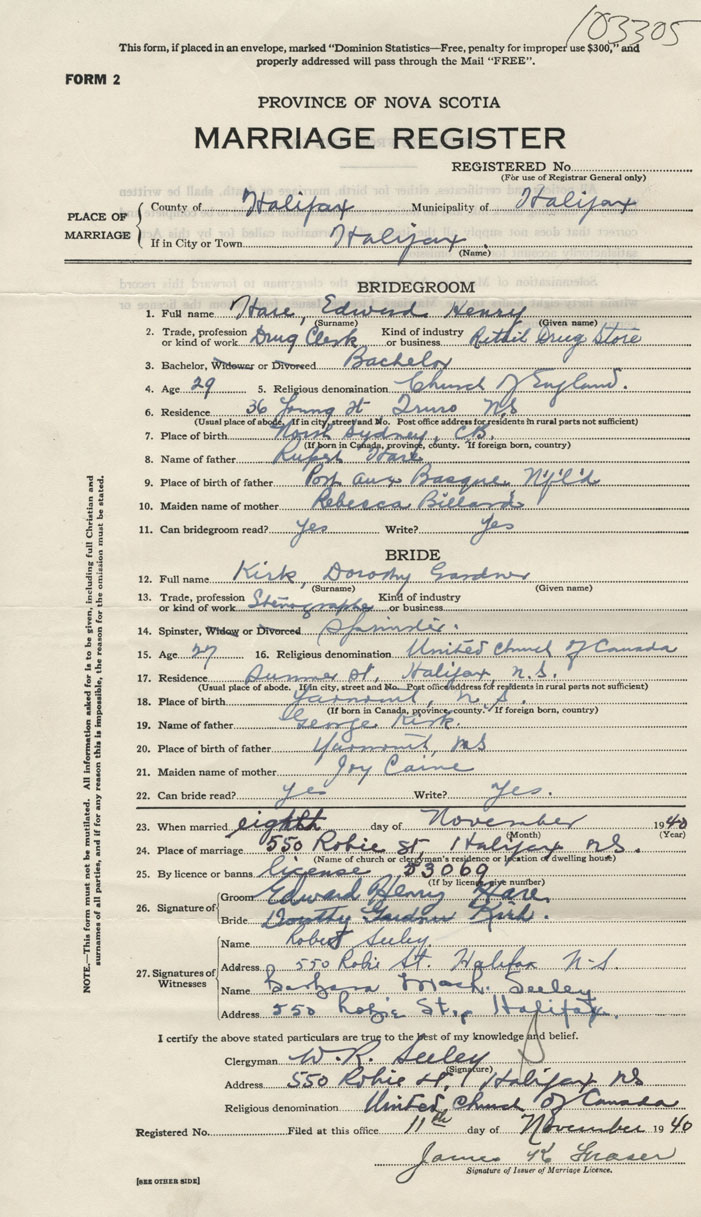 103305
This form, if placed in an envelope, marked "Dominion Statistics—Free, penalty for improper use $300," and
properly addressed will pass through the Mail "FREE".
FORM 2
PROVINCE OF NOVA SCOTIA
MARRIAGE REGISTER
REGISTERED No.
(For use of Registrar General only)
PLACE OF MARRIAGE
County of Halifax Municipality of Halifax
If in City or Town Halifax
(Name)
BRIDEGROOM
1. Full name Hare, Edward Henry
(Surname) (Given name)
2. Trade, profession or kind of work Drug Clerk Kind of industry or business Retail Drug Store
3. Bachelor, Widower or Divorced Bachelor
4. Age 29 5. Religious denomination Church of England.
6. Residence 36 Young St Truro NS
(Usual place of abode. If in city, street and No. Post office address for residents in rural parts not sufficient)
7. Place of birth North Sydney, C.B.
(If born in Canada, province, county. If foreign born, country)
8. Name of father Rupert Hare
9. Place of birth of father Port aux Basque Nf'l'd
10. Maiden name of mother Rebecca Billard
11. Can bridegroom read? yes Write? yes
BRIDE
12. Full name Kirk, Dorothy Gardner
(Surname) (Given name)
13. Trade, profession or kind of work Stenographer Kind of industry or business
14. Spinster, Widow or Divorced Spinster.
15. Age 27 16. Religious denomination United Church of Canada
17. Residence Summer St, Halifax, N.S.
(Usual place of abode. If in city, street and No. Post office address for residents in rural parts not sufficient)
18. Place of birth Yarmouth, N.S.
(If born in Canada, province, county. If foreign born, country)
19. Name of father George Kirk.
20. Place of birth of father Yarmouth, NS
21. Maiden name of mother Joy Caine
22. Can bride read? yes Write? yes.
23. When married eighth day of November 1940
(Month) (Year)
24. Place of marriage 550 Robie St, Halifax NS.
(Name of church or clergyman's residence or location of dwelling house)
25. By licence or banns license 53069
(If by licence, give number)
26. Signature of
Groom Edward Henry Hare
Bride Dorothy Gardner Kirk.
27. Signatures of Witnesses
Name Robert Seeley
Address 550 Robie St. Halifax N-S.
Name Barbara Seeley
Address 550 Robie St., Halifax.
I certify the above stated particulars are true to the best of my knowledge and belief.
Clergyman W. R. Seeley
(Signature)
Address 550 Robie St, Halifax NS
Religious denomination United Church of Canada
Registered No. Filed at this office 11th day of November 1940
James K Fraser
Signature of Issuer of Marriage Licence.
[SEE OTHER SIDE]
NOTE.—This form must not be mutilated. All information asked for is to be given, including full Christian and
surnames of all parties, and if for any reason this is impossible, the reason for the omission must be stated.